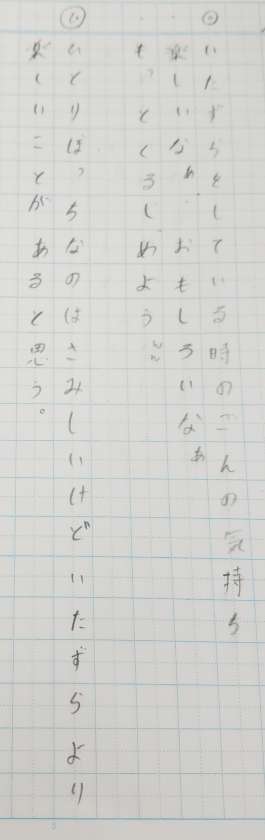 ① いたずらをしている時のごんの気持ち
・楽しいなあ。おもしろいなあ
・もっとくるしめよう
② ひとりぼっちなのはさみしいけどいたずらより
楽しいことがあると思う。